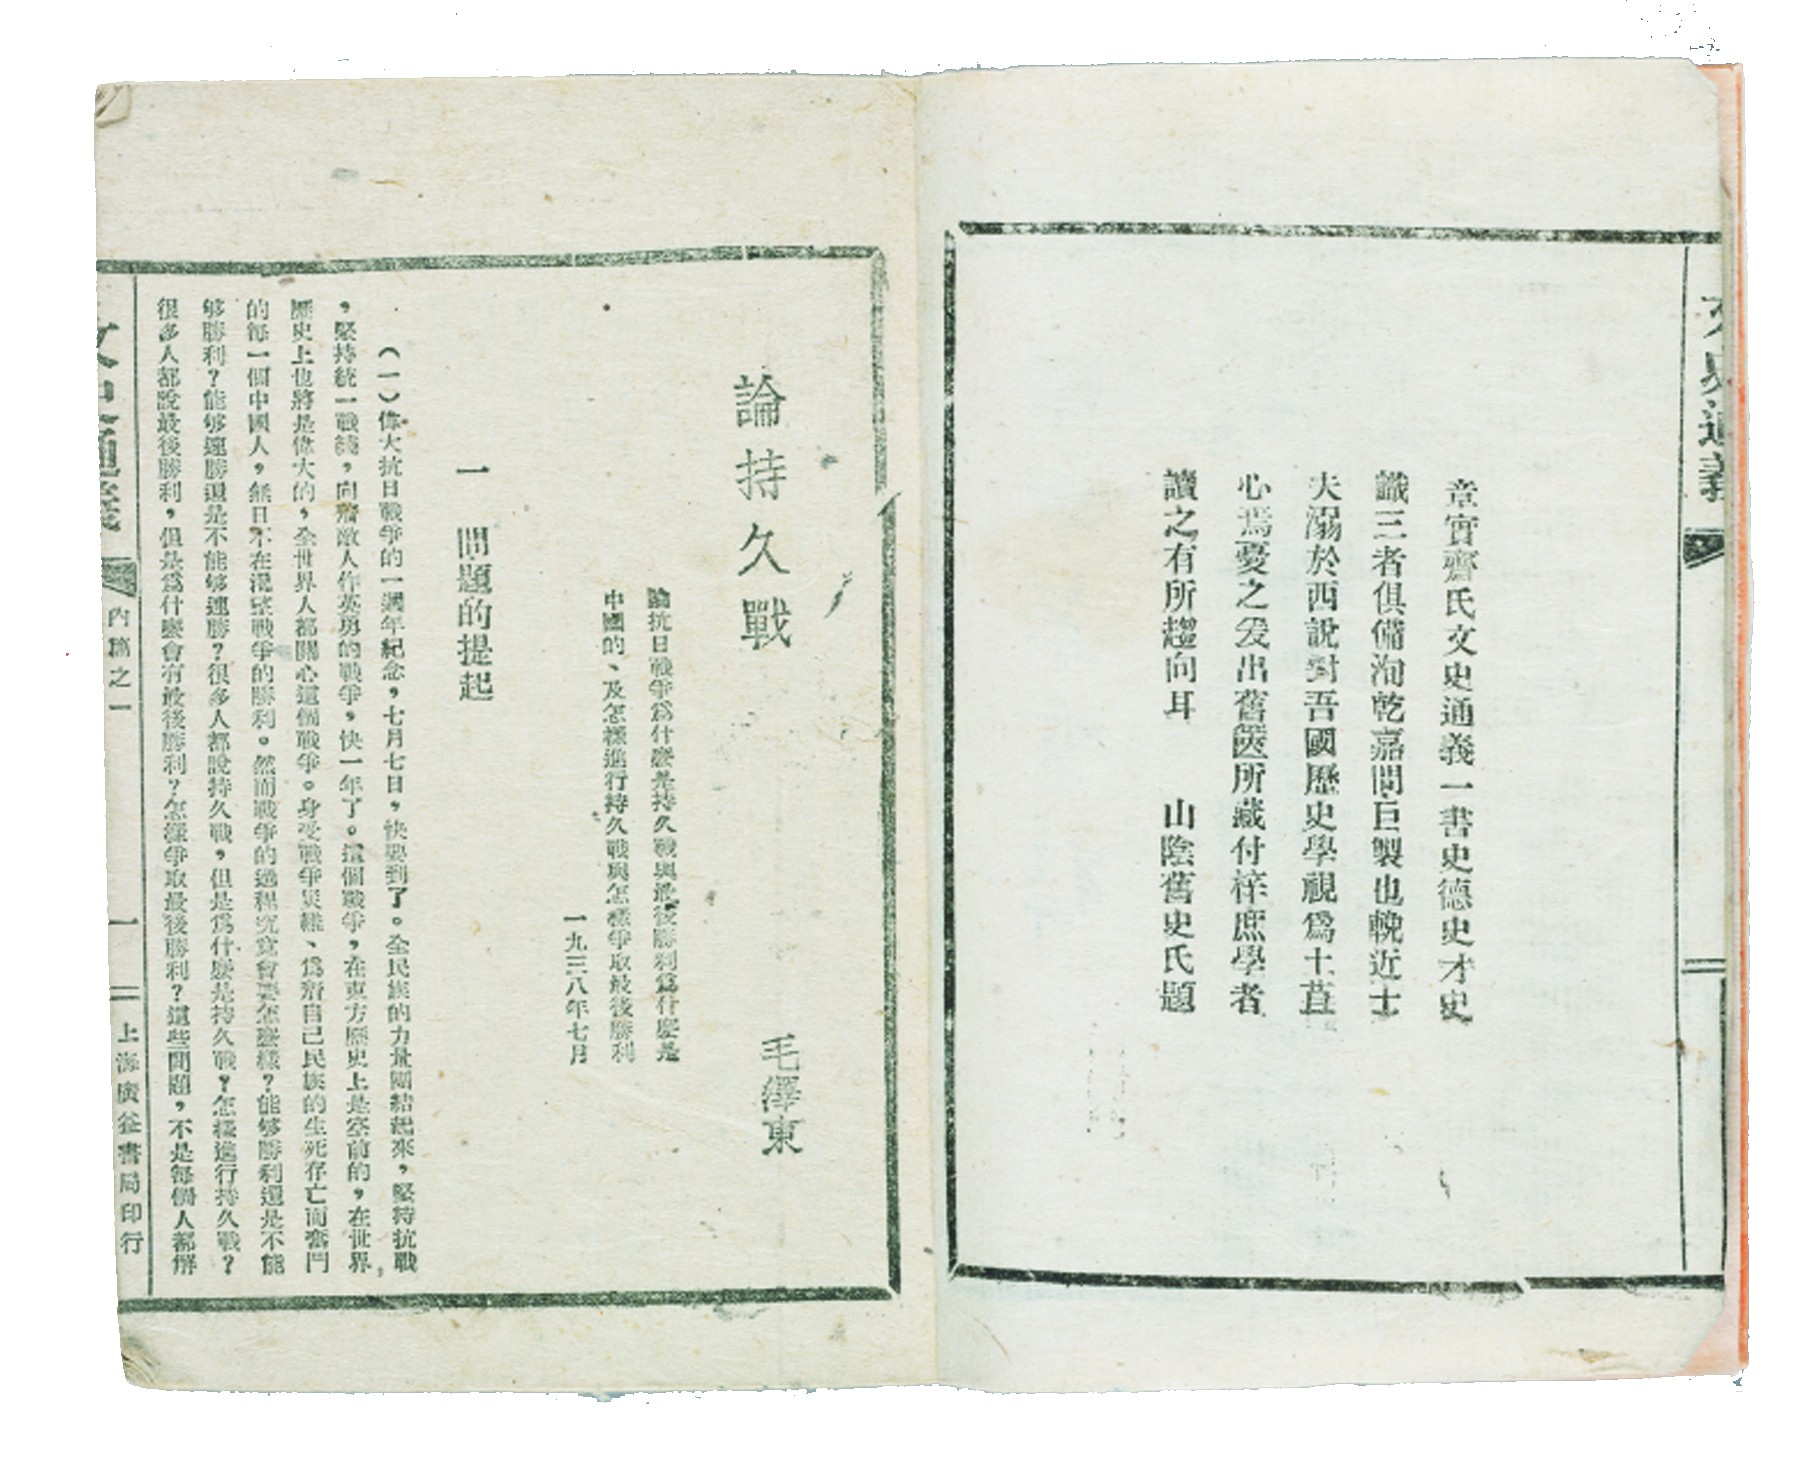 文史通義
章實齋氏文史通義一書史德史才史
識三者俱備洵乾嘉間巨製也輓近士
夫溺於西說對吾國歷史學視爲土苴
心焉憂之爰出舊篋所藏付梓庶學者
讀之有所趨向耳 山陰舊史氏題
論持久戰
毛澤東
論抗日戰爭爲什麼是持久戰與最後勝利爲什麼是
中國的、及怎樣進行持久戰與怎樣爭取最後勝利
一九三八年七月
一 問題的提起
（一）偉大抗日戰爭的一週年紀念，七月七日，快要到了。全民族的力量團結起來，堅持抗戰
，堅持統一戰綫，向着敵人作英勇的戰爭，快一年了。這個戰爭，在東方歷史上是空前的，在世界
歷史上也將是偉大的，全世界人都關心這個戰爭。身受戰爭災難、爲着自己民族的生死存亡而奮鬥
的每一個中國人，無日不在渴望戰爭的勝利。然而戰爭的過程究竟會要怎麼樣？能够勝利還是不能
够勝利？能够速勝還是不能够速勝？很多人都說持久戰，但是爲什麼是持久戰？怎樣進行持久戰？
很多人都說最後勝利，但是爲什麼會有最後勝利？怎樣爭取最後勝利？這些問題，不是每個人都解
文史通義
內篇之一
一
上海廣益書局印行